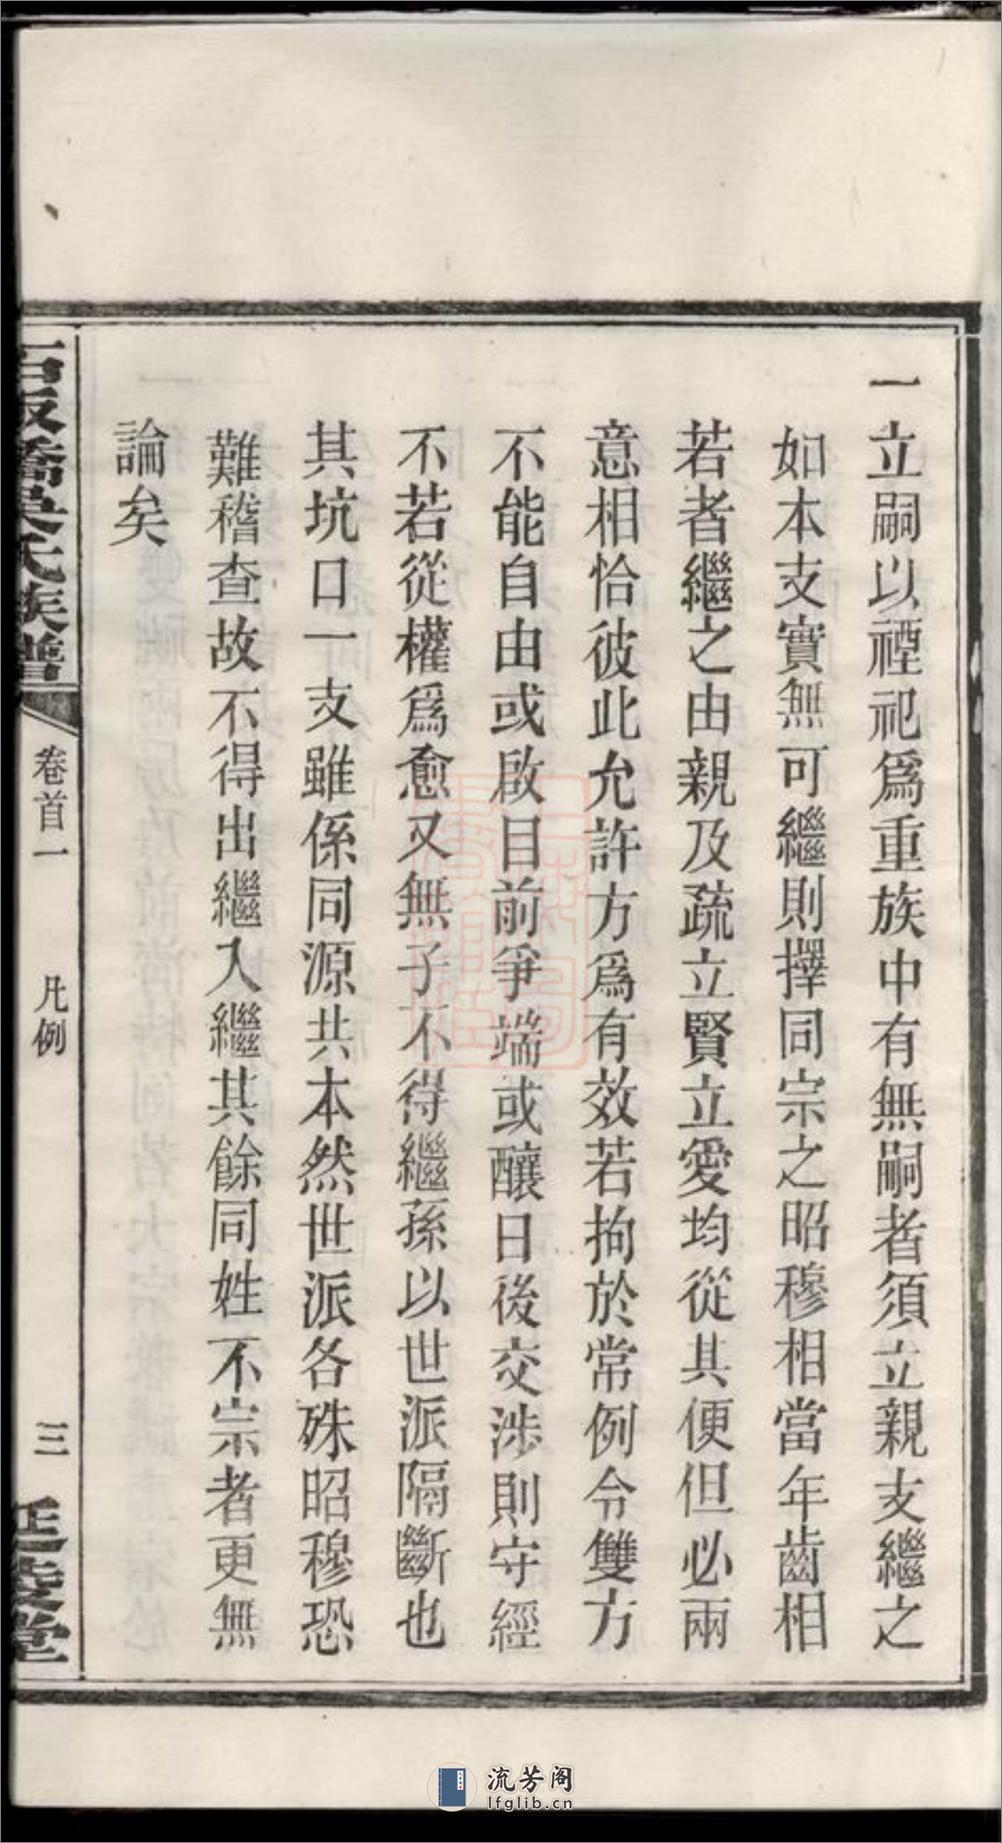 一立嗣以禋祀爲重族中有無嗣者須立親支繼之
如本支實無可繼則擇同宗之昭穆相當年齒相
若者繼之由親及疏立賢立愛均從其便但必兩
意相恰彼此允許方爲有效若拘於常例令雙方
不能自由或啟目前爭端或釀日後交涉則守經
不若從權爲愈又無子不得繼孫以世派隔斷也
其坑口一支雖係同源共本然世派各殊昭穆恐
難稽查故不得出繼入繼其餘同姓不宗者更無
論矣
石坂橋吳氏族譜
卷首一 凡例
三
延陵堂
流芳阁
lfglib.cn